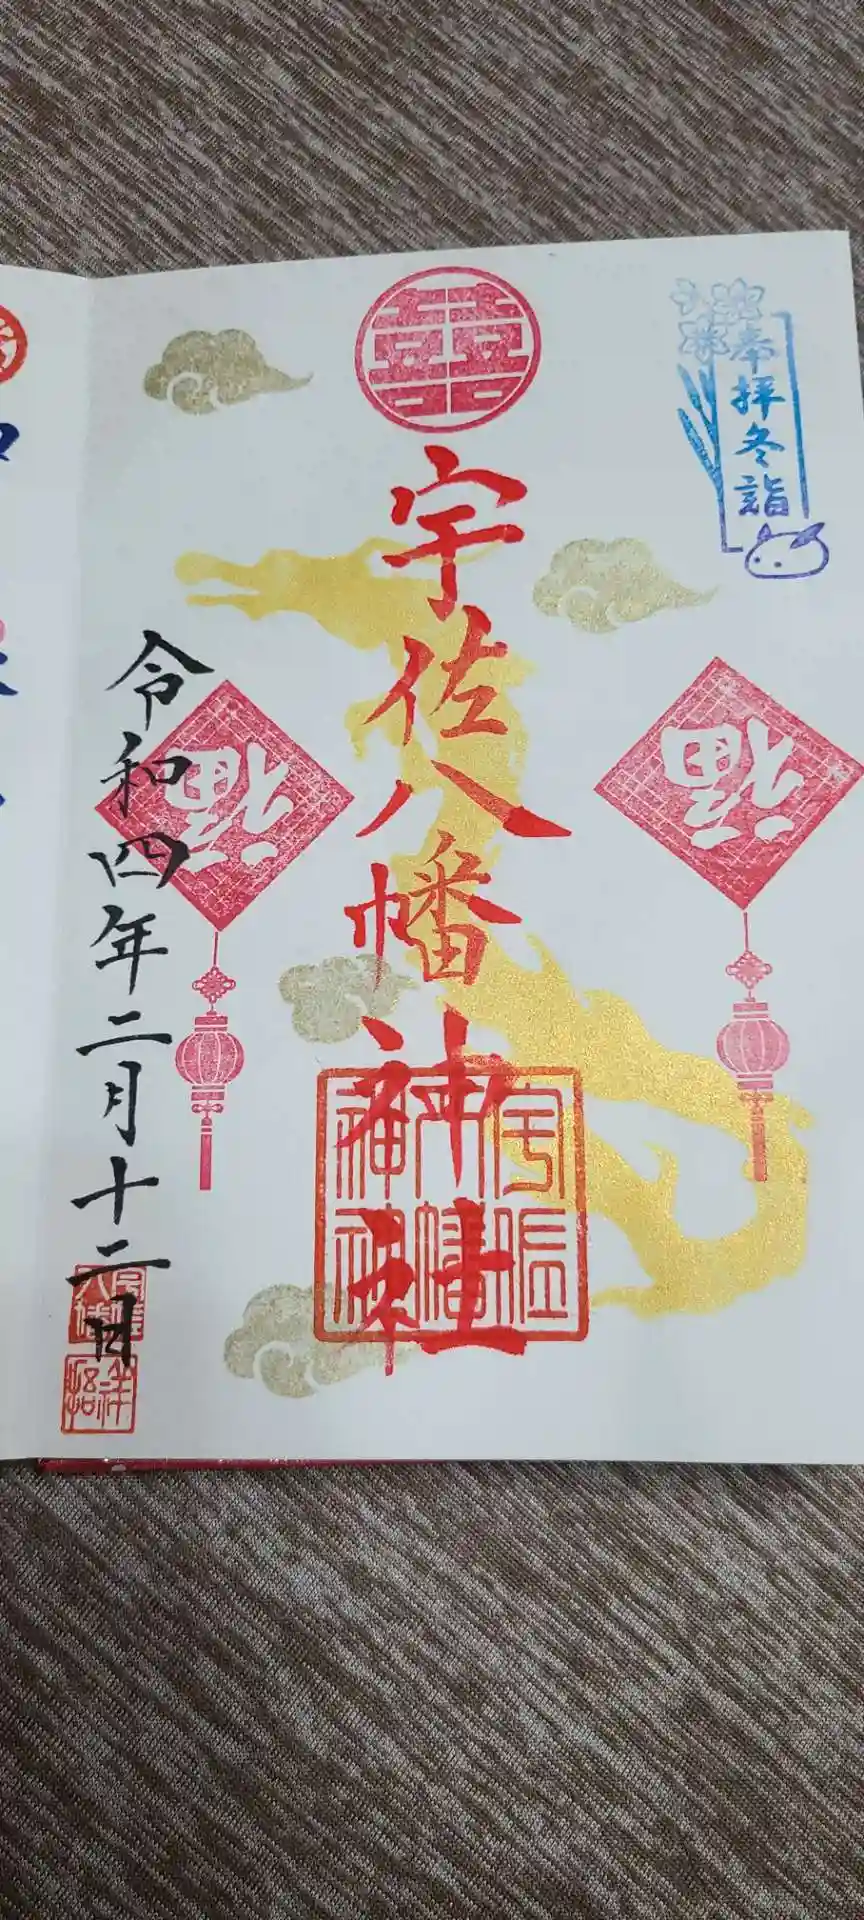 奉拝冬詣
囍
宇佐八幡神社
福
福
宇佐
八幡
神社
令和四年二月十二日